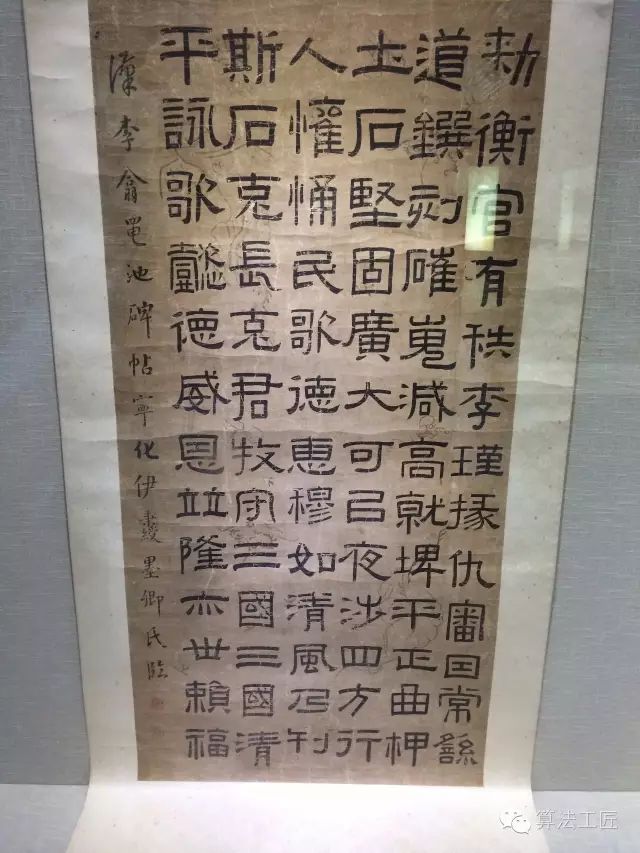 勅衡官有秩李瑾掾仇審因常繇
道鐉刻磪嵬減高就埤平正曲柙
土石堅固廣大可㠯夜涉四方行
人懽悀民歌德惠穆如清風乃刊
斯石克長克君牧守三國三國清
平詠歌懿德威恩竝隆亦世賴福
漢李翕黽池碑帖寧化伊秉綬墨卿氏臨
算法工匠